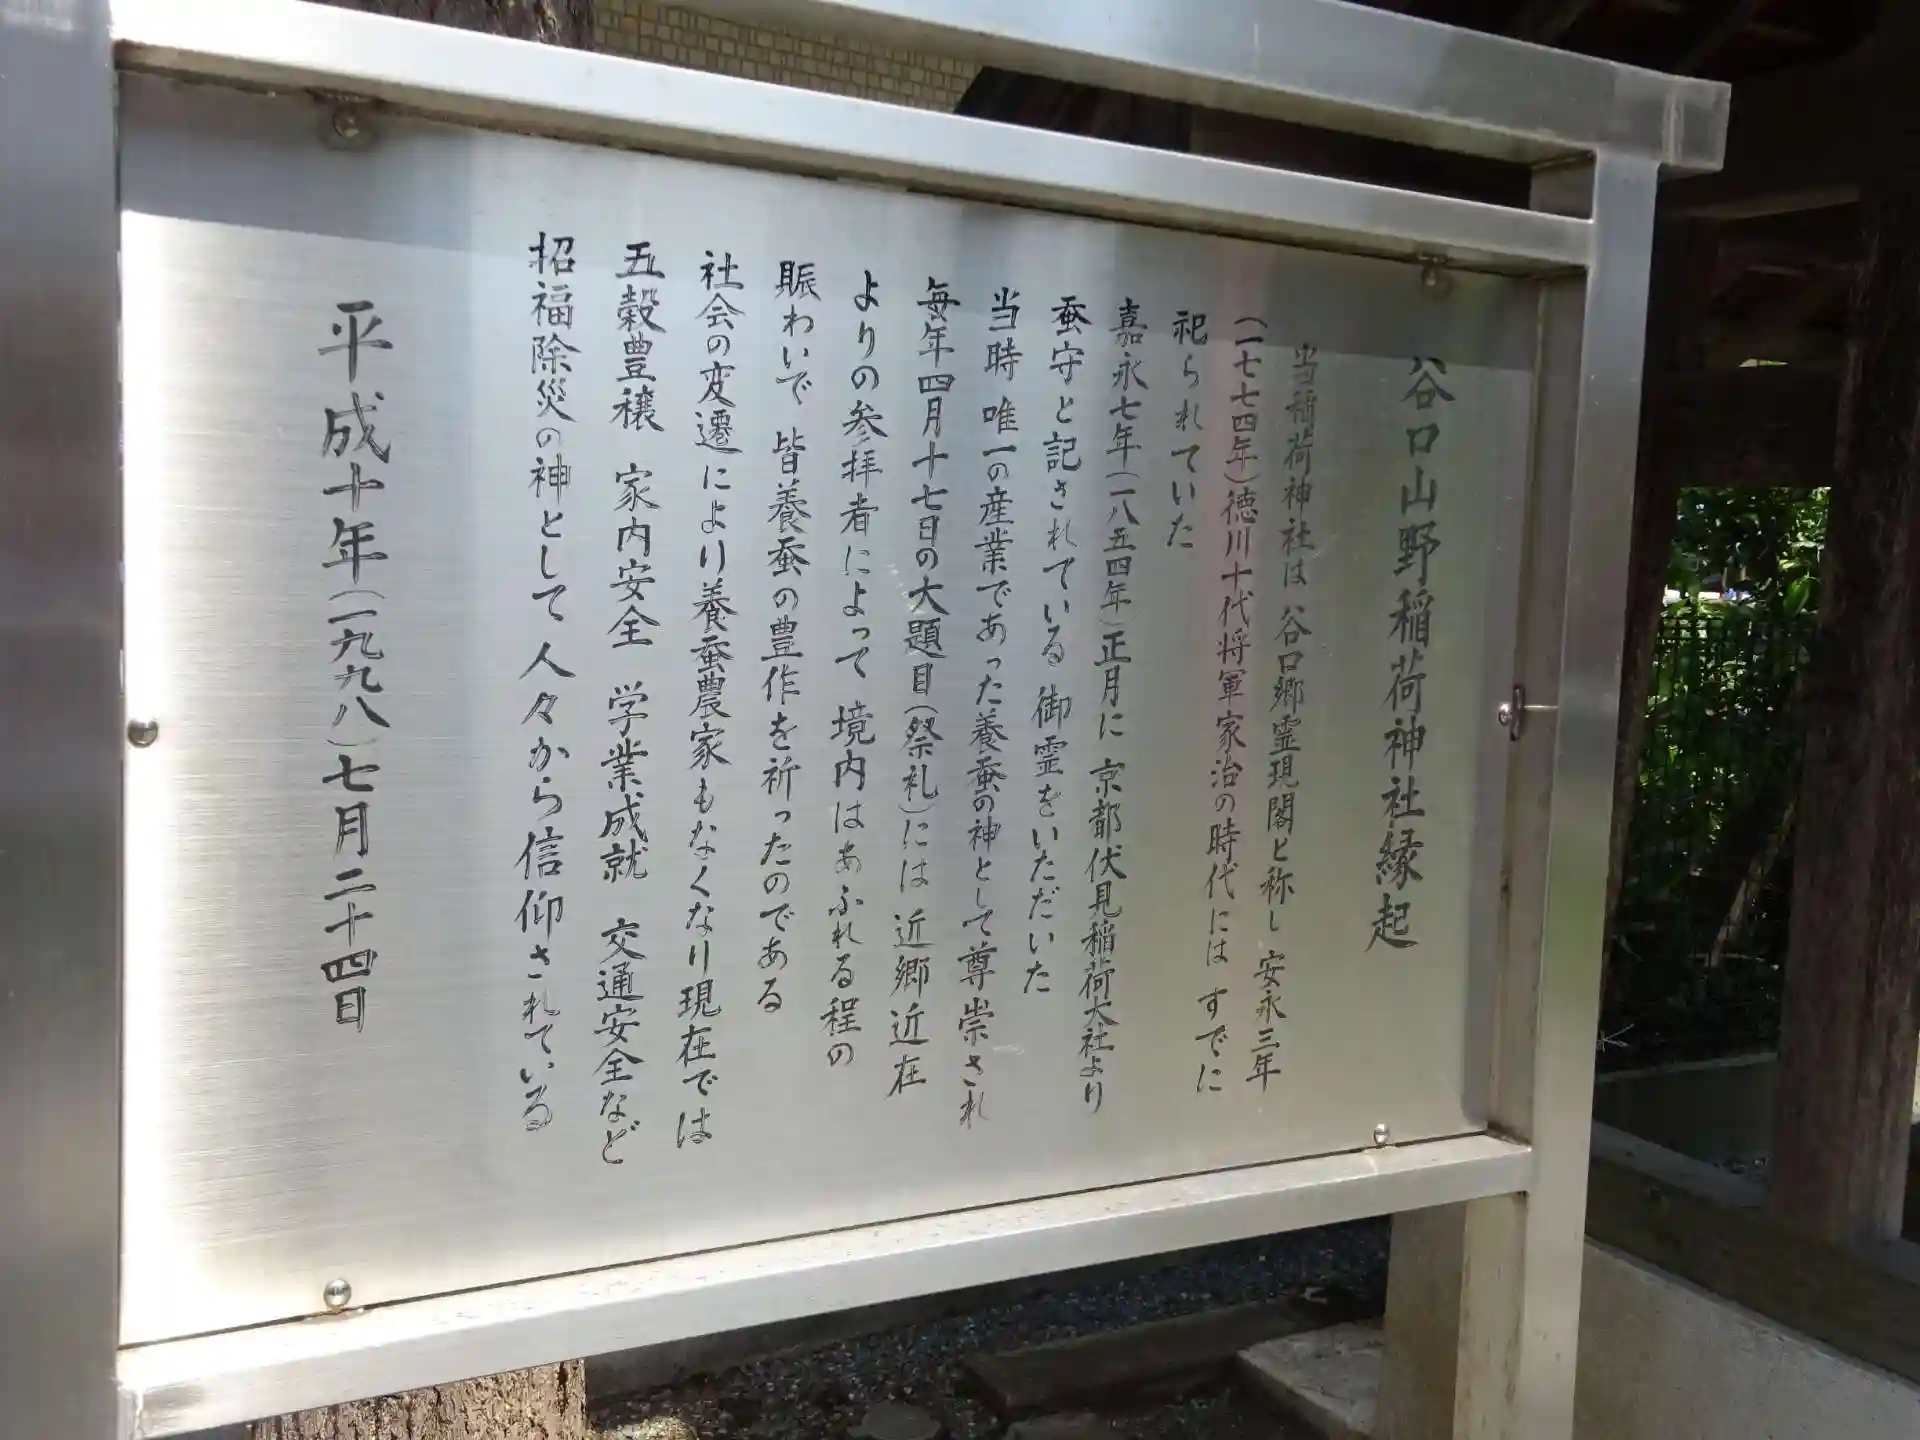 谷口山野稲荷神社縁起
当稲荷神社は 谷口郷霊現閣と称し 安永三年
(一七七四年)徳川十代将軍家治の時代には すでに
祀られていた
嘉永七年(一八五四年)正月に 京都伏見稲荷大社より
蚕守と記されている 御霊をいただいた
当時 唯一の産業であった養蚕の神として尊崇され
毎年四月十七日の大題目(祭礼)には 近郷近在
よりの参拝者によって 境内はあふれる程の
賑わいで 皆養蚕の豊作を祈ったのである
社会の変遷により養蚕農家もなくなり現在では
五穀豊穣 家内安全 学業成就 交通安全など
招福除災の神として人々から信仰されている
平成十年(一九九八)七月二十四日